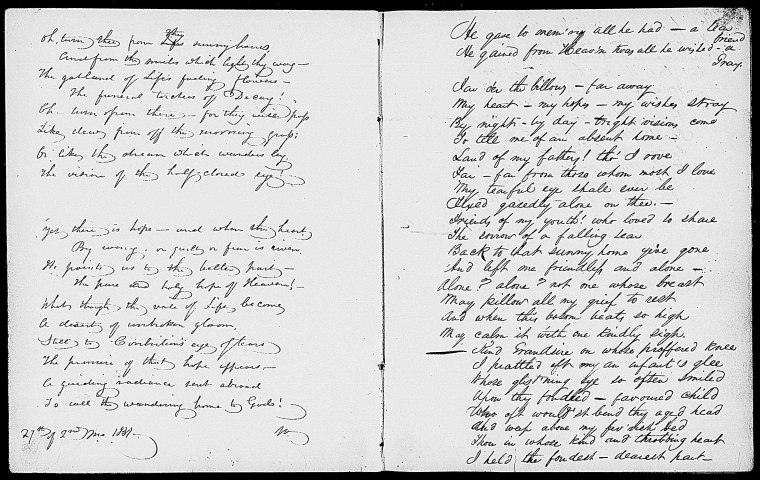 Oh, turn thee from Life's sunny hours,
And from the smiles which light thy way—
The garland of Life's fading flowers—
The funeral torches of Decay!
Oh turn from these—for they will pass
Like dew from off the morning grass;
Or like the dream which wanders by
The vision of the half-closed eye!
Yet there is hope—and when the heart
By wrong, or guilt, or is riven
It points us to the better part—
The pure and holy hope of Heaven!—
What though the vale of Life become
A desert of unbroken gloom,
Still to Contrition's eye of tears
The promise of that hope appears—
A guiding radiance sent abroad
To call the wandering home to God!
27th of 2nd Mo 1831.
W
He gave to mem'ry all he had—a tear
He gained from Heav'n twas all he wished—a friend
Gray.
Far o'er the billows—far away
My heart—my hopes—my wishes stray
By night—by day—bright visions come
To tell me of an absent home—
Land of my fathers! tho' I rove
Far—far from those whom most I love
My tearful eye shall ever be
Fixed gazedly alone on thee.—
Friends of my youth! who loved to share
The sorrow of a falling tear
Back to that sunny home ye've gone
And left one friendless and alone—
Alone? alone? not one whose breast
May pillow all my grief to rest
And when this bosom beats so high
May calm it with one kindly sigh.
Kind Grandsire on whose proffered knee
I prattled oft my an infant's glee
Whose glist'ning eye so often smiled
Upon thy fondled—favoured child
Who oft would'st bend thy aged head
And weep above my fev'rish bed
Thou in whose kind and throbbing heart
I held the fondest—dearest part—